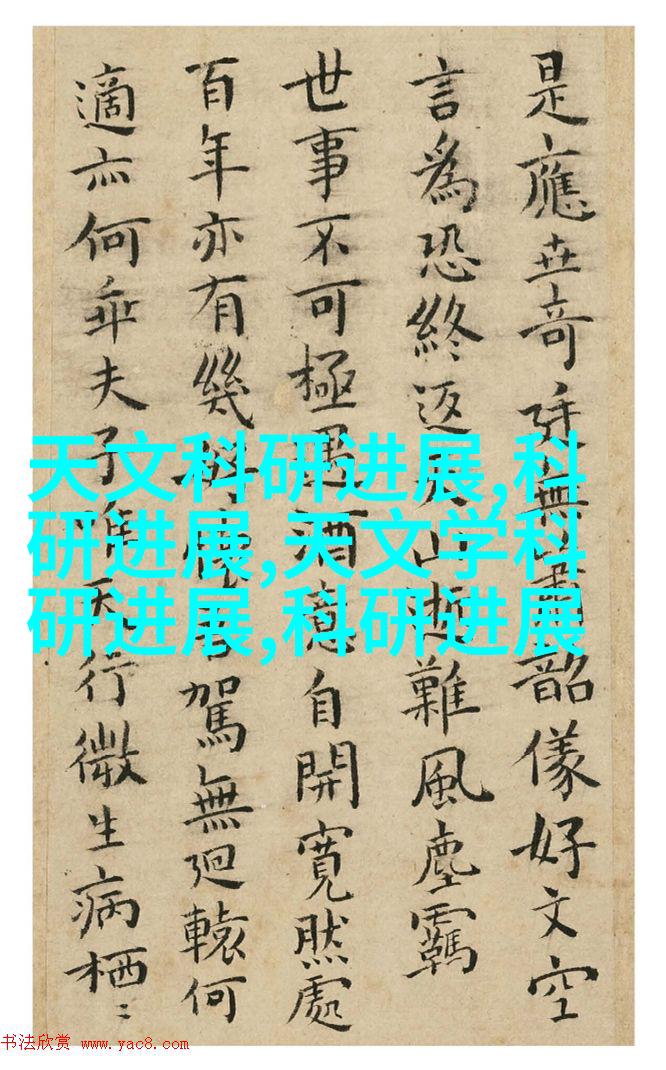 是應世奇無韶儀好文空
言爲恐終返山逝難風塵羈
世事不可極遇酒意自開寬然處
百年亦有幾懷駕無迴轅何
適亦何乖夫子行微生病栖〻
天文科研进展,科
研进展,天文学科
研进展,科研进展
书法欣赏 www.yac8.com